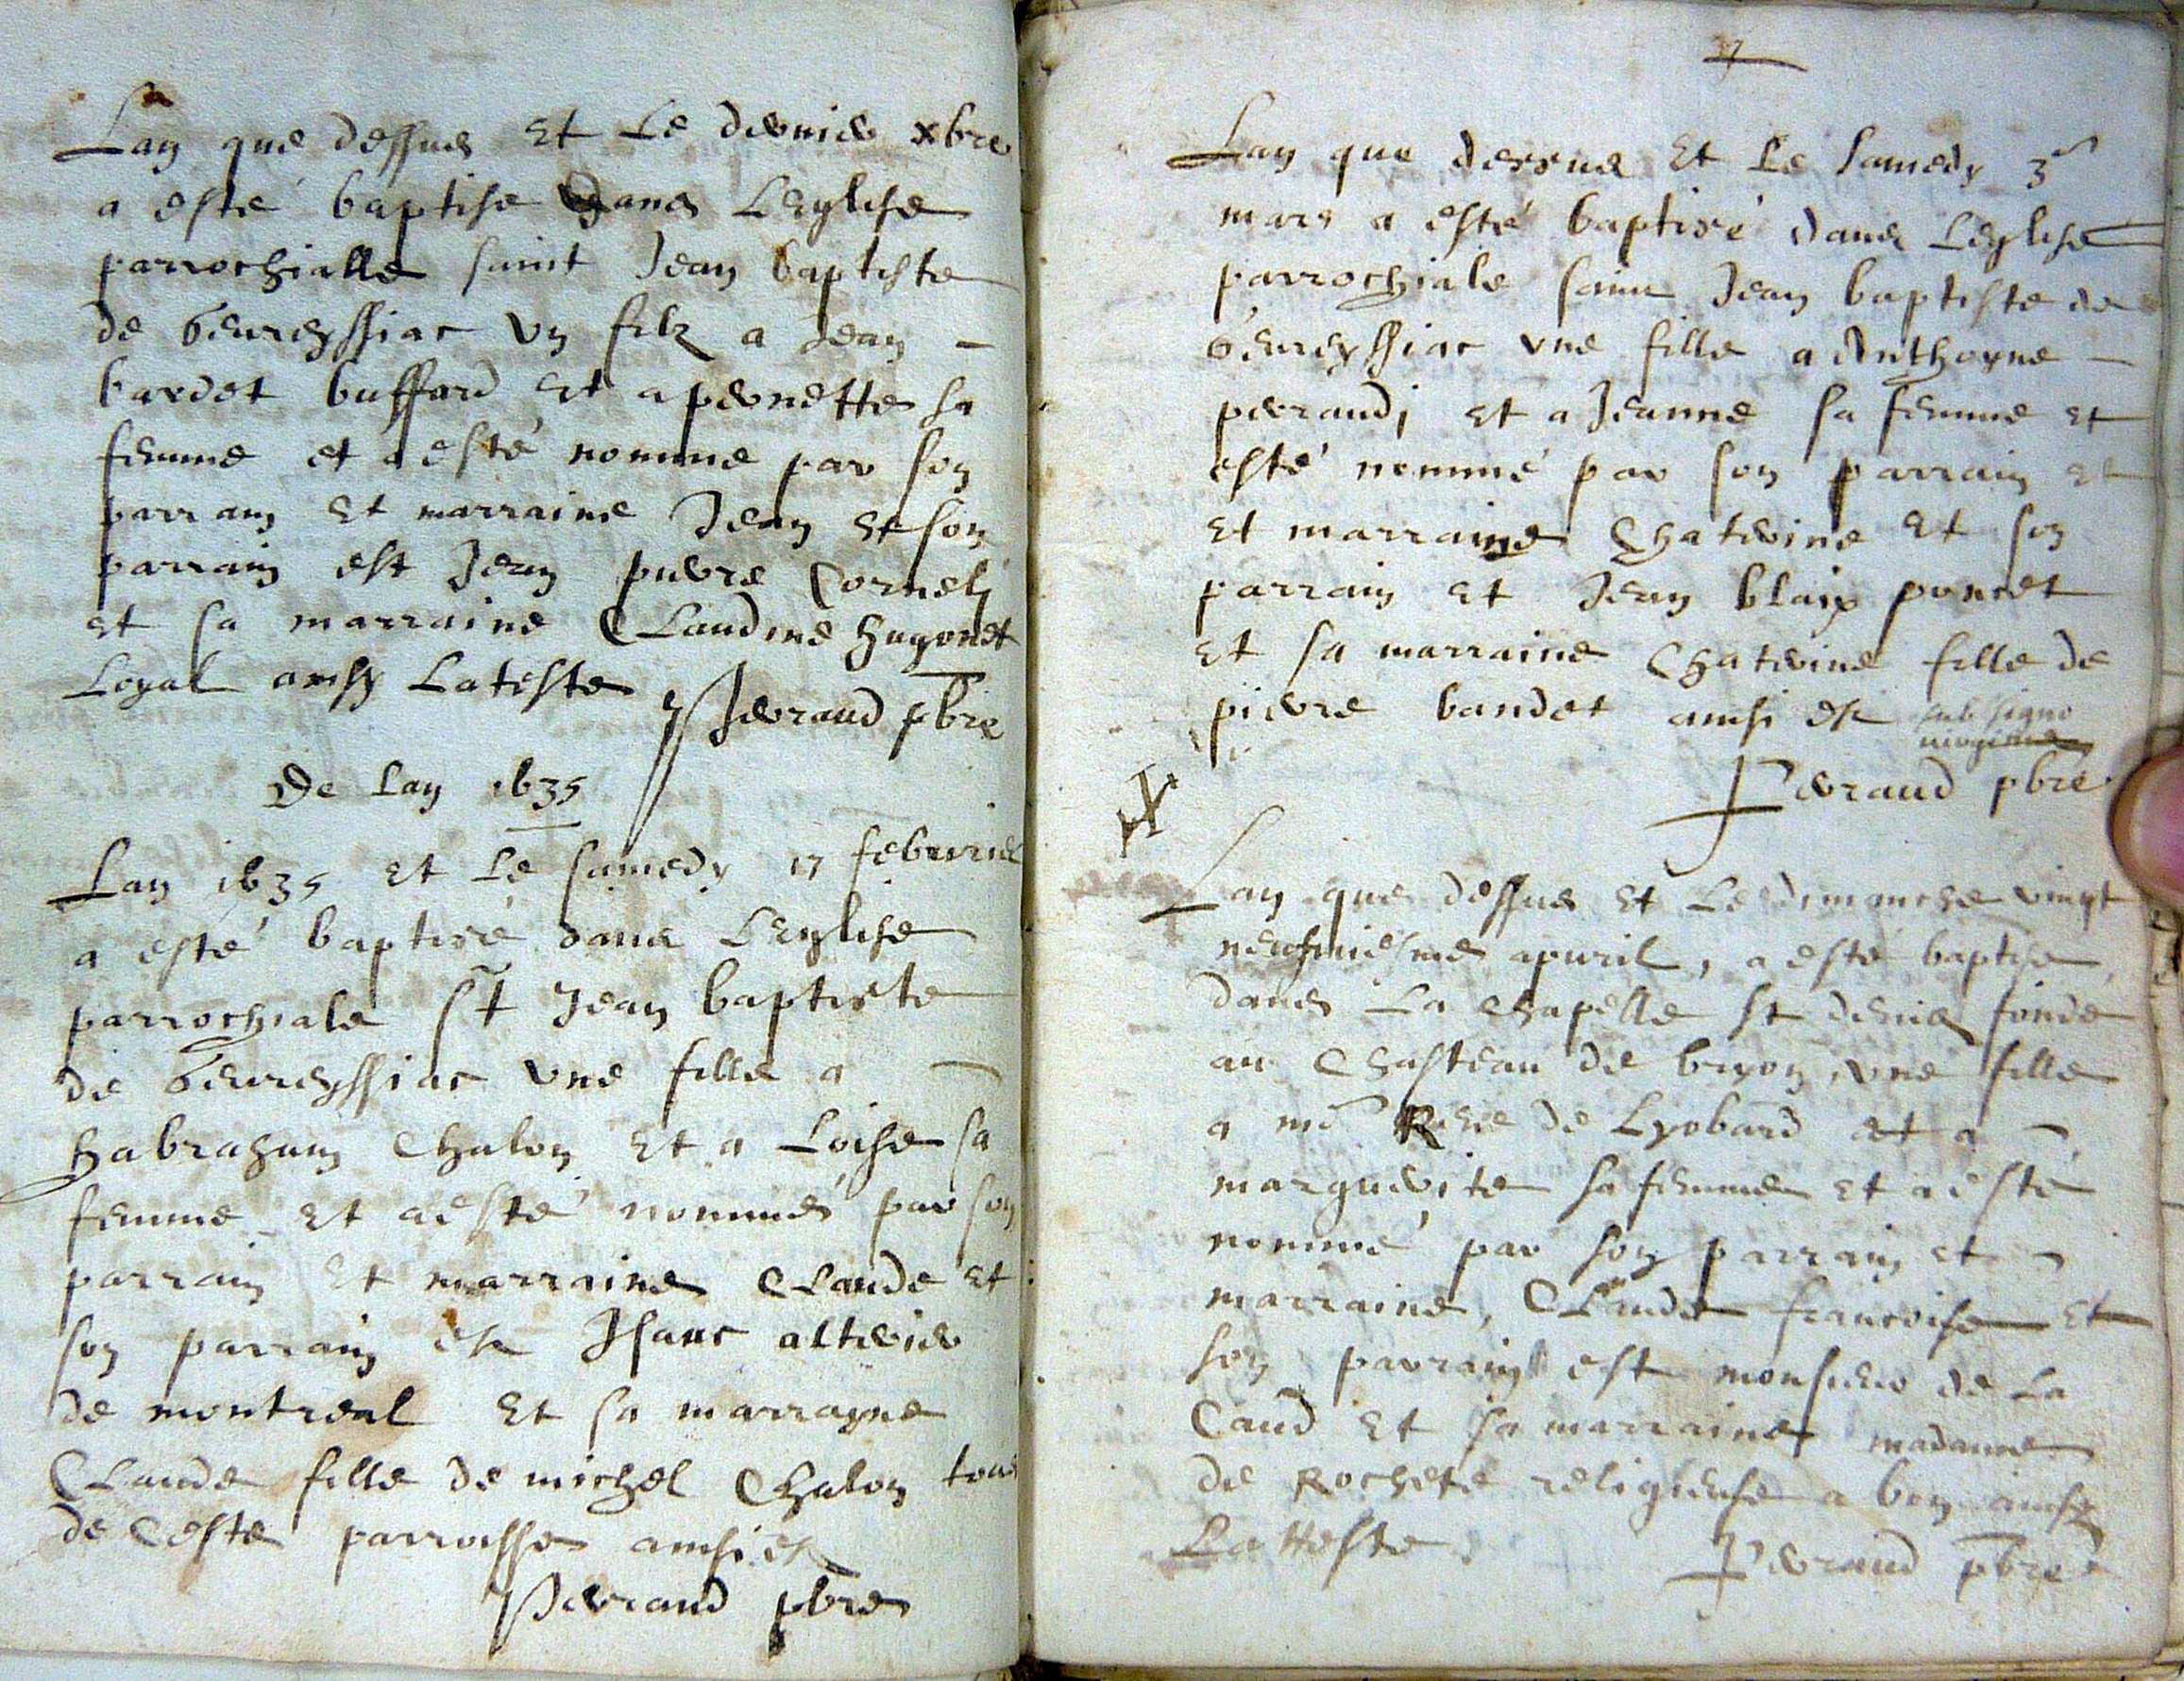 Lan que dessus et le dernier xbre
a esté baptise dans Leglise
parrochialle saint Jean baptiste
de Geureyssiac un filz a Jean
bardet buffard et a pernette sa
femme et a esté nomme par son
parrain et marraine Jean et son
parrain est Jean pierre Cornely
et sa marraine Claudine hugonet
Loyal ainsy Lateste
Perraud pbre
De Lan 1635
Lan 1635 et Le samedy 17 febvrier
a esté baptisé dans Leglise
parrochiale St Jean baptiste
de Geureyssiac une fille a
habraham Chalon et a Loise sa
femme et a esté nommé par son
parrain et marraine Claude et
son parrain est Isaac altvier
de montreal et sa marrayne
Claude fille de michel Chalon tous
de Ceste parroisse ainsi est
Perraud pbre
7
Lan que dessus et Le samedy 3e
mars a esté baptisé dans Leglise
parrochiale saint Jean baptiste de
Geureyssiac une fille a Anthoyne
perraudi et a Jeanne sa femme et
esté nommé par son parrain et
et marraine Chaterine et son
parrain et Jean blaix poncet
et sa marraine Chaterine fille de
pierre bandet ainsi est sub signo
Perraud pbre
Lan que dessus et Le dimanche vingt
neufmiesme apuril, a esté baptise
dans La chapelle St denis fondé
au Chasteau de bryon, une fille
a mr René de Lyobard et a
marguerite sa femme et a esté
nommé par son parrain et
marraine, Claude francoise et
son parrain est monsieur de La
Caud et sa marraine madame
de Rochete religieuse a bon ainsy
La tteste
Perraud pbre